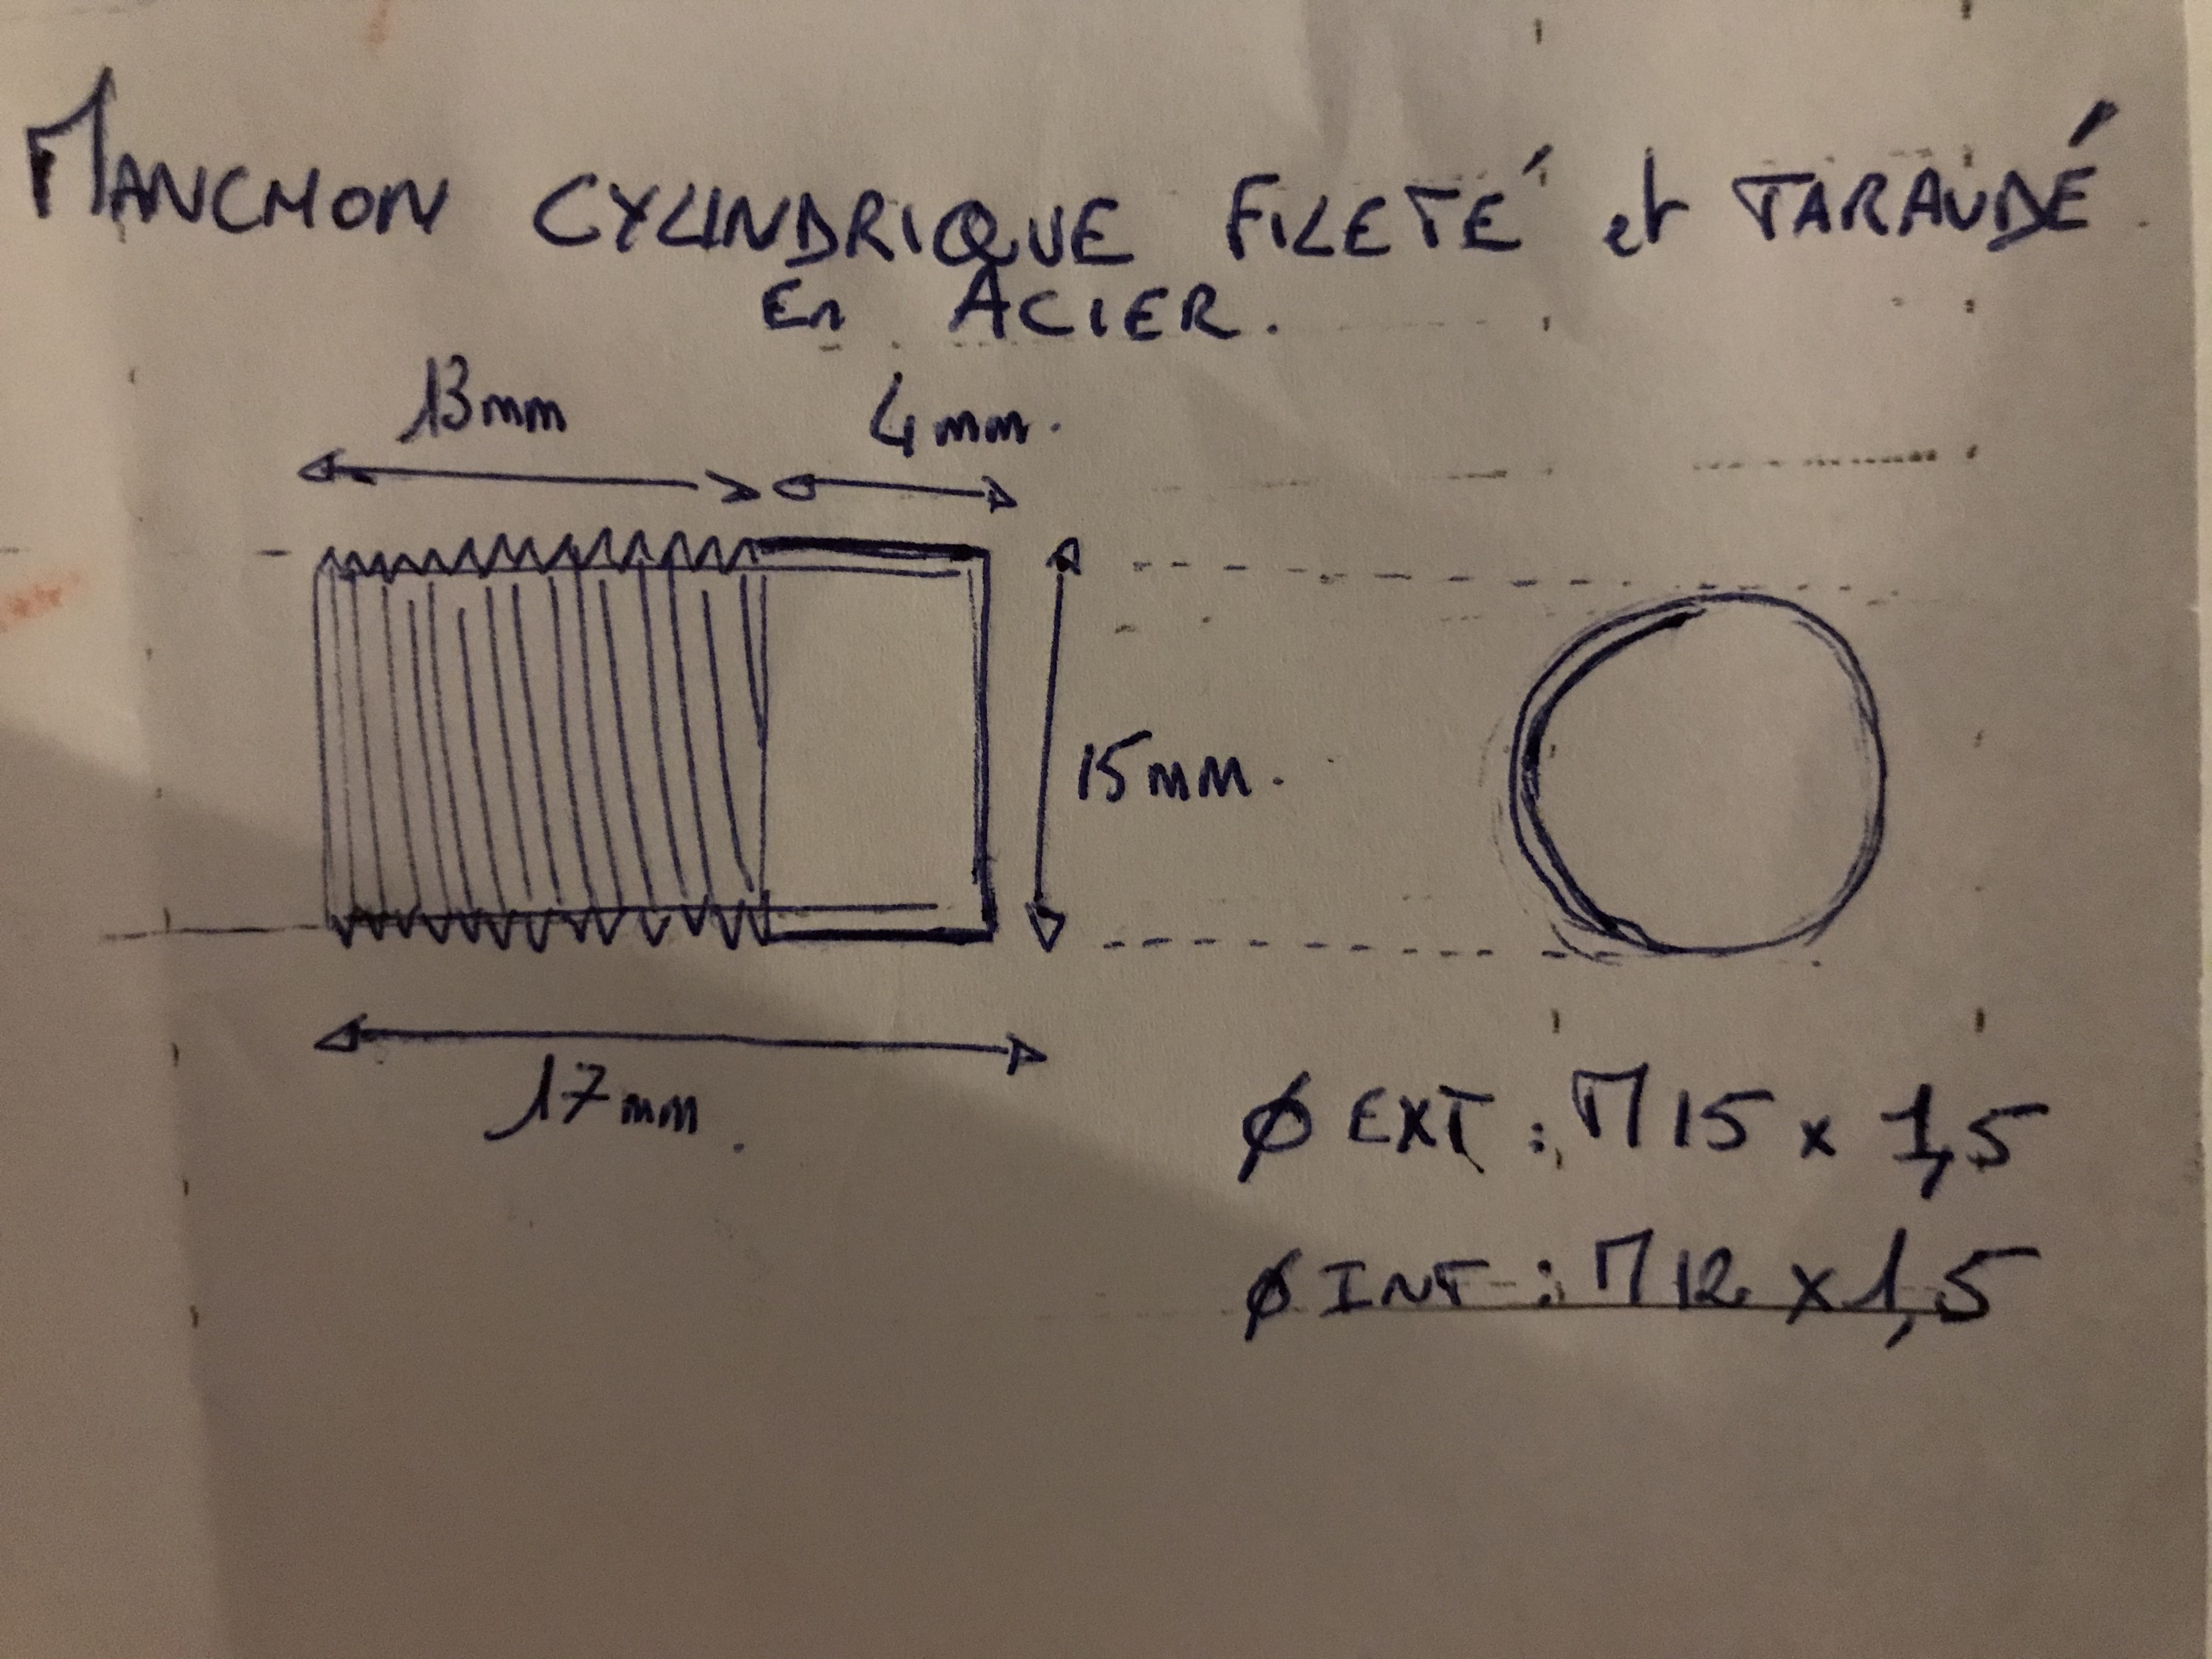 MANCHON CYLINDRIQUE FILETÉ et TARAUDÉ
En ACIER.
13mm 4mm.
15mm.
17mm.
Ø EXT : M15 x 1,5
Ø INT : M12 x 1,5